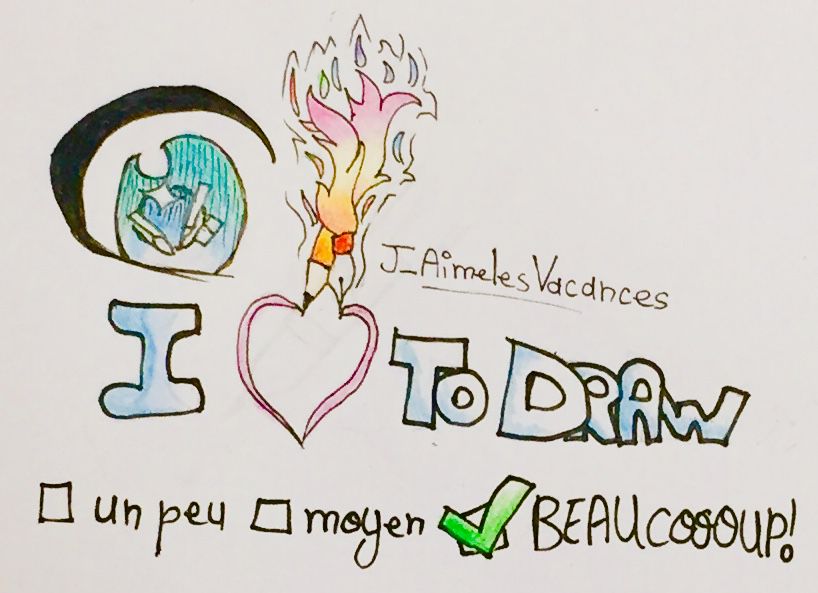 J_AimelesVacances
I TO DRAW
un peu moyen BEAUCOOOUP!